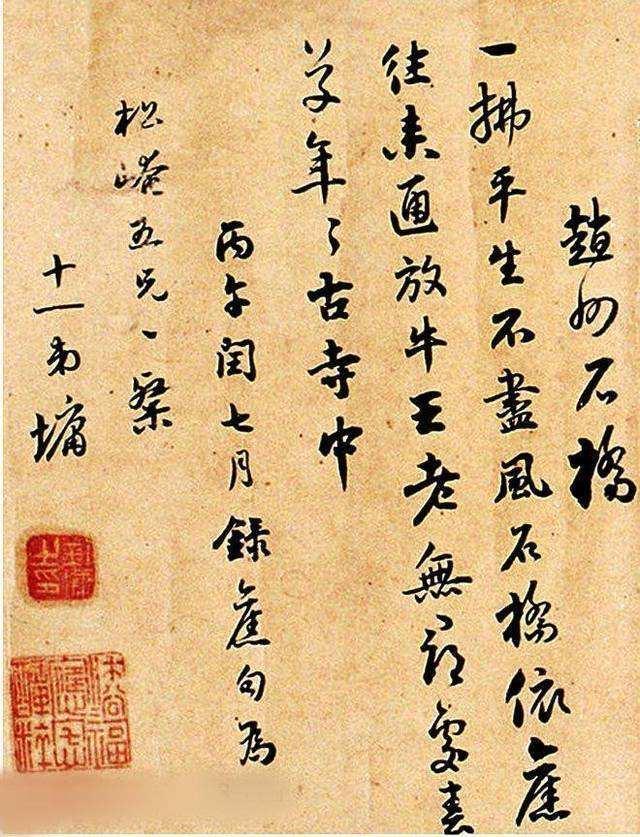 趙州石橋
一拂平生不盡風石橋依舊
往来通放牛王老無處春
草年々古寺中
丙午閏七月錄舊句為
松崦五兄一粲
十一弟墉
劉墉之印